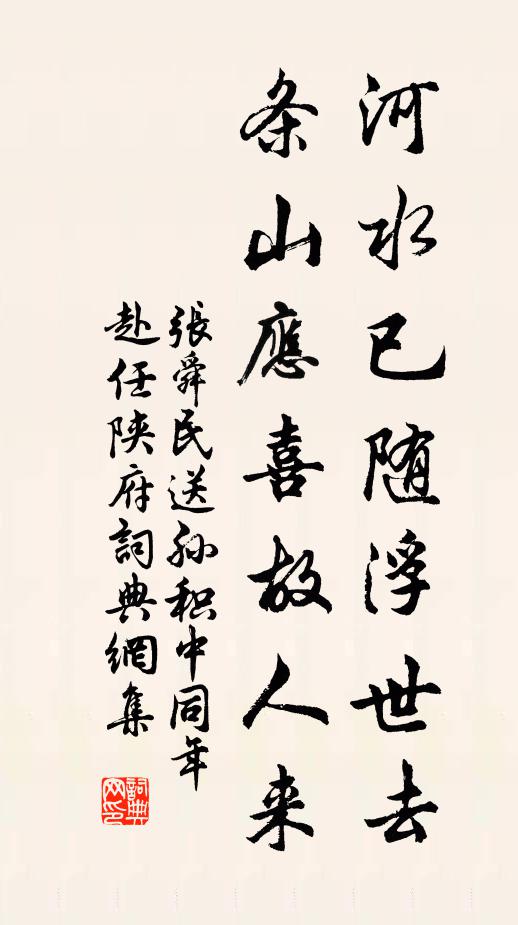 河水已随浮世去
条山應喜故人来
張舜民送孙积中同年
赴任陝府詞典網集
詞典网印